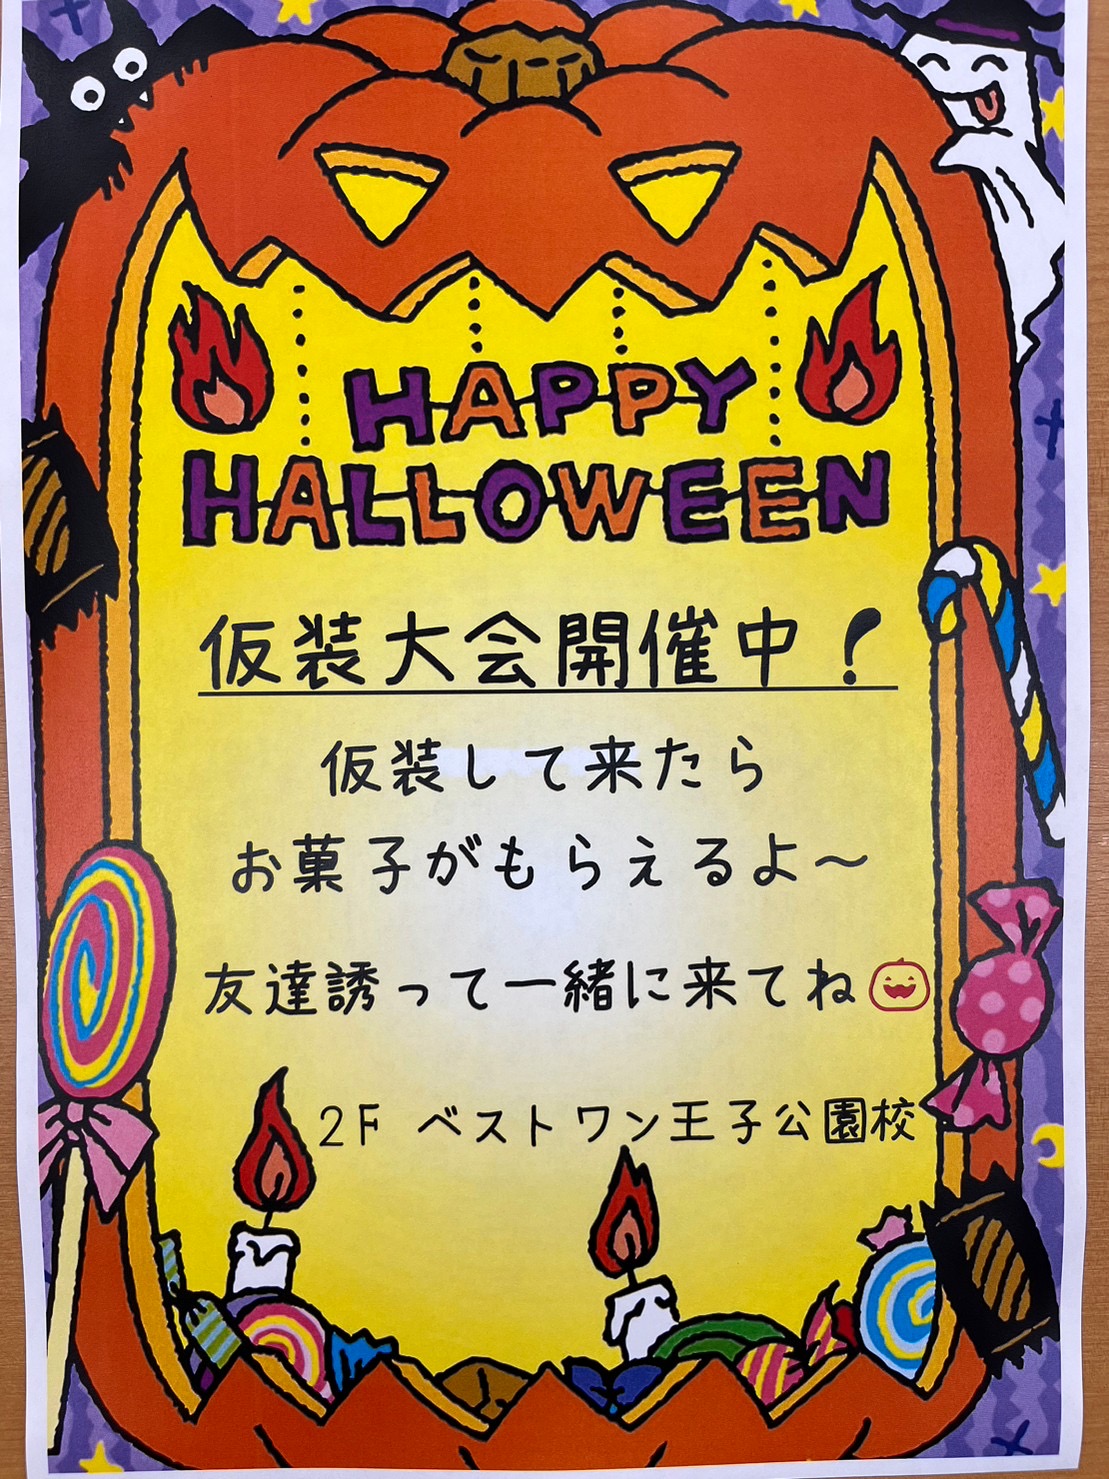 HAPPY
HALLOWEEN
仮装大会開催中！
仮装して来たら
お菓子がもらえるよ～
友達誘って一緒に来てね
2F ベストワン王子公園校